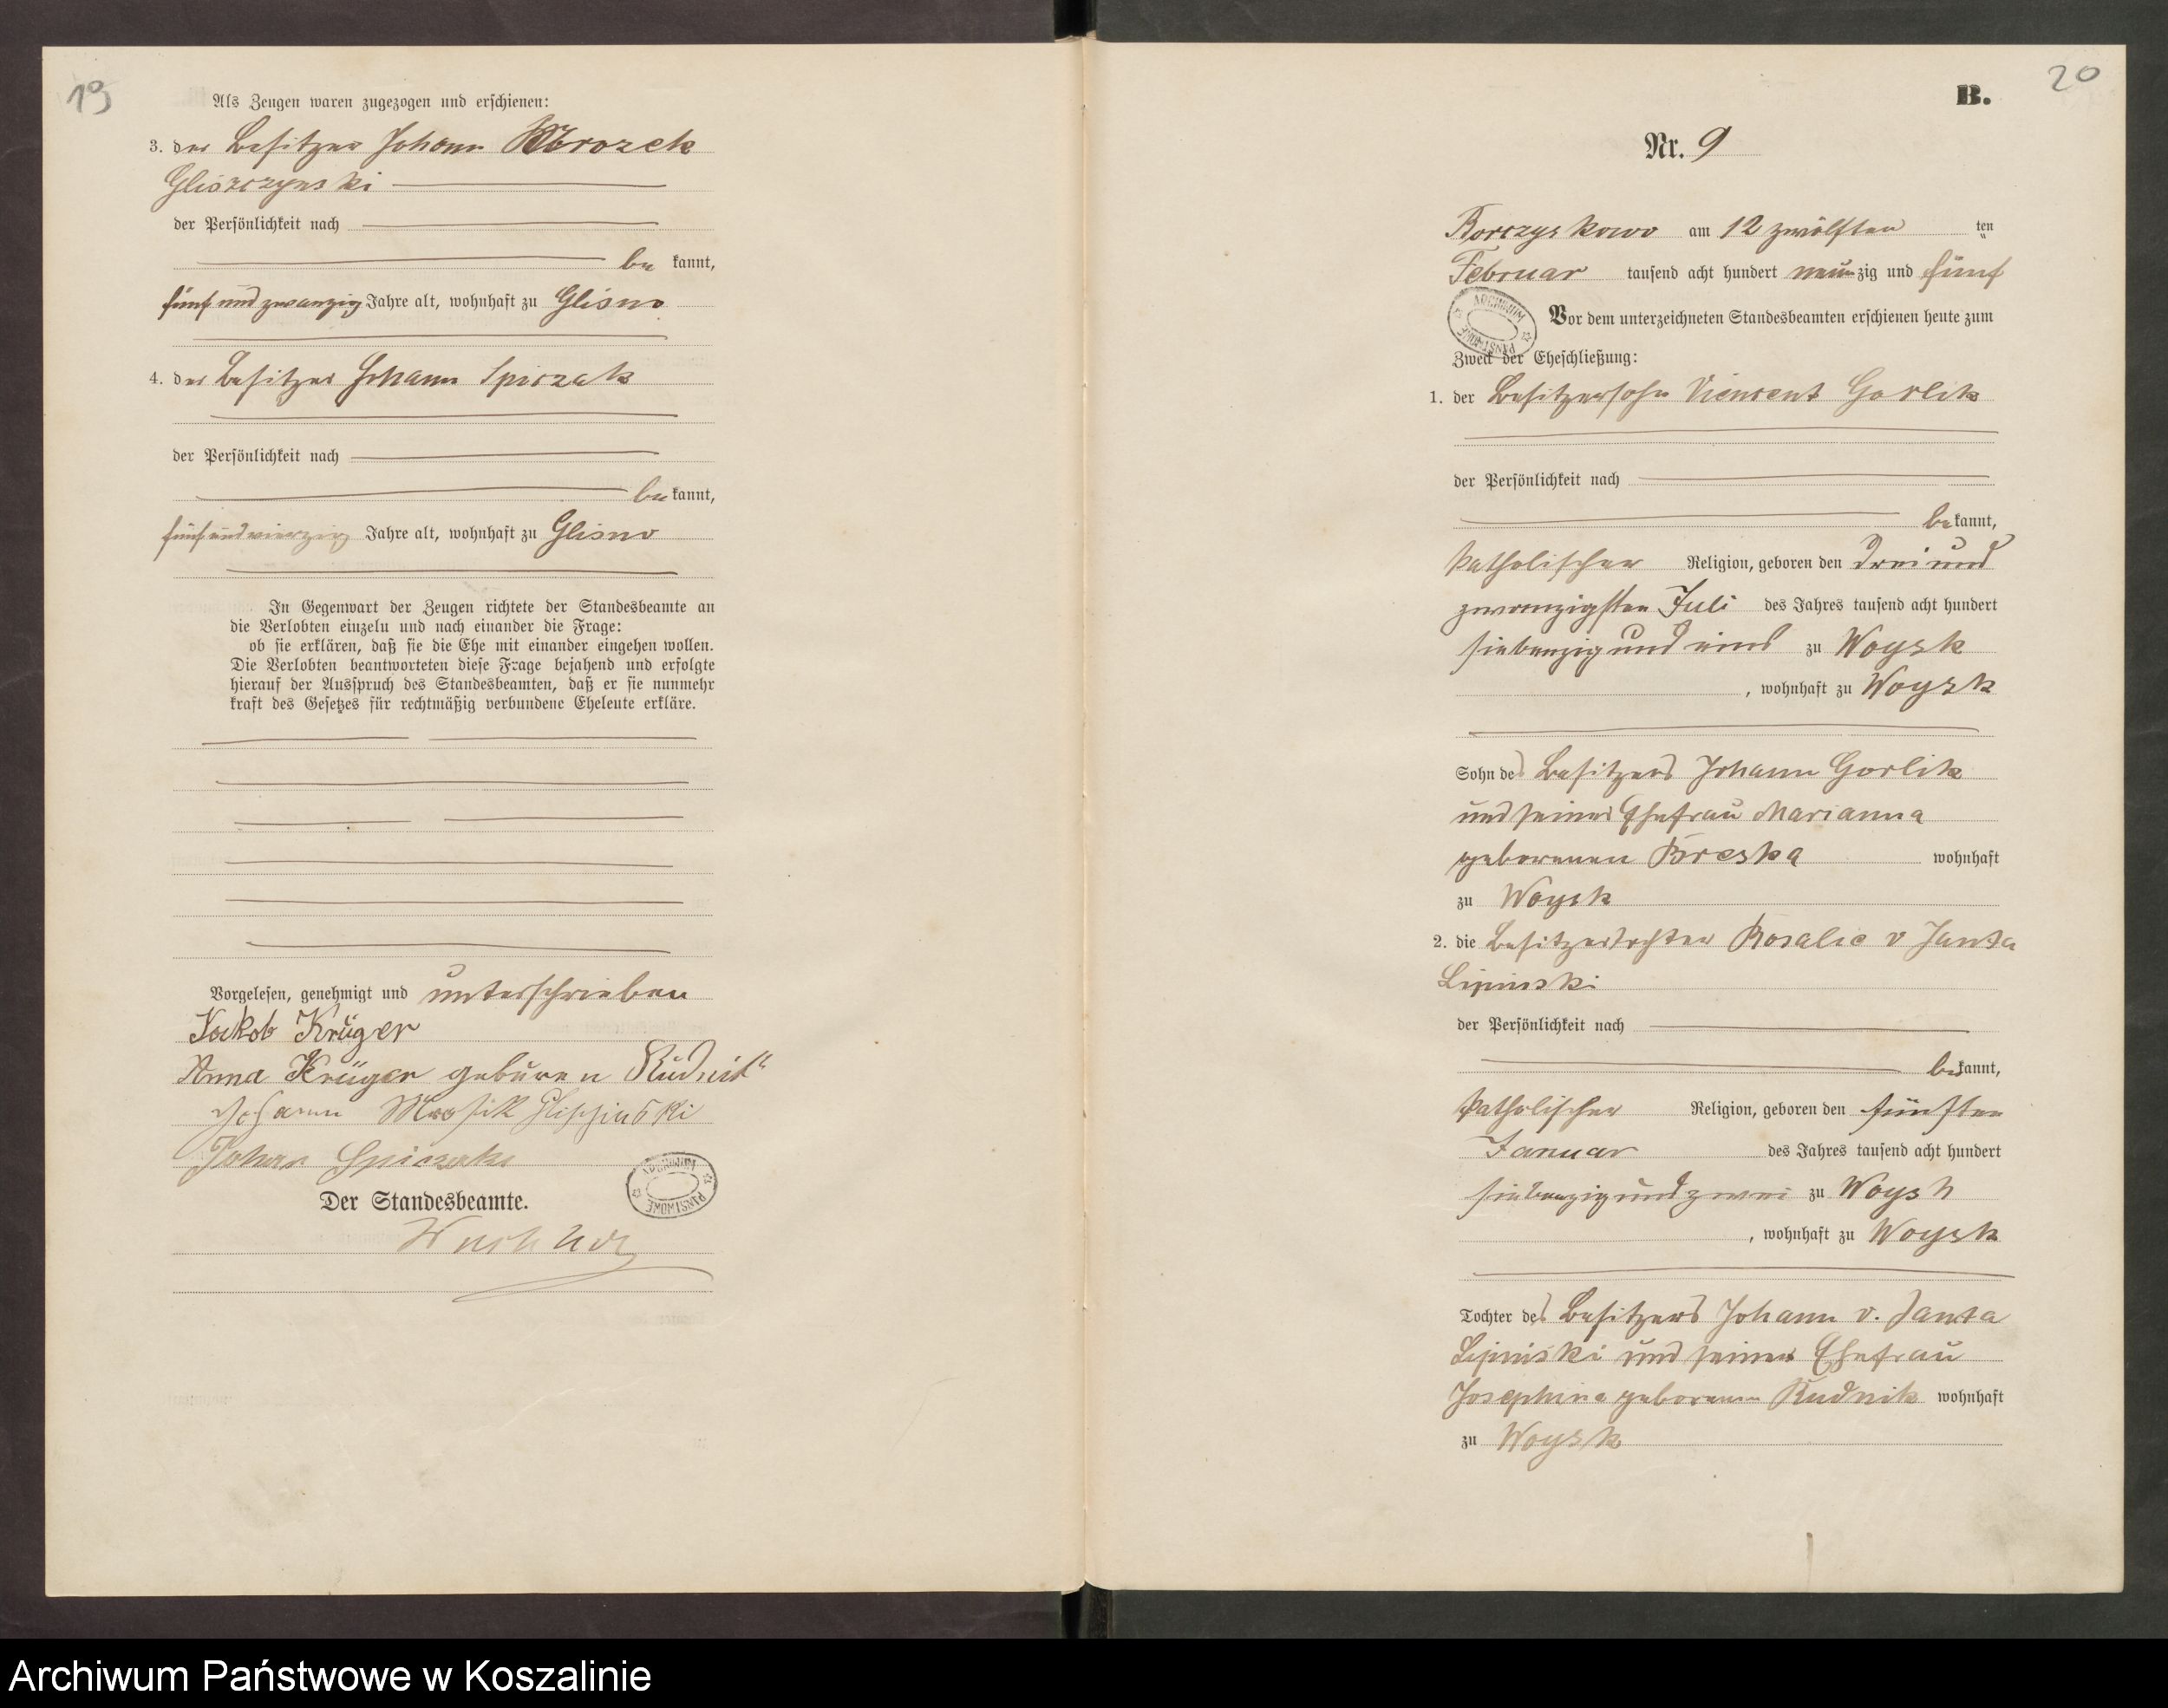 19
Als Zeugen waren zugezogen und erschienen:
3. der Besitzer Johann Mrozek
Gliszczynski
der Persönlichkeit nach
be kannt,
fünf und zwanzig Jahre alt, wohnhaft zu Glisno
4. der Besitzer Johann Spiczak
der Persönlichkeit nach
be kannt,
fünfundvierzig Jahre alt, wohnhaft zu Glisno
In Gegenwart der Zeugen richtete der Standesbeamte an
die Verlobten einzeln und nach einander die Frage:
ob sie erklären, daß sie die Ehe mit einander eingehen wollen.
Die Verlobten beantworteten diese Frage bejahend und erfolgte
hierauf der Ausspruch des Standesbeamten, daß er sie nunmehr
kraft des Gesetzes für rechtmäßig verbundene Eheleute erkläre.
Vorgelesen, genehmigt und unterschrieben
Jakob Krüger
Anna Krüger geburen Rudnik
Johann Mrosik Glischinski
Johan Spiczak
ARCHIWUM PAŃSTWOWE
Der Standesbeamte.
20
B.
Nr. 9
Borczyskowo am 12 zwölften ten
Februar tausend acht hundert neunzig und fünf
ARCHIWUM PAŃSTWOWE
Vor dem unterzeichneten Standesbeamten erschienen heute zum
Zweck der Eheschließung:
1. der Besitzersohn Vincent Gorlik
der Persönlichkeit nach
be kannt,
katholischer Religion, geboren den drei und
zwanzigsten Juli des Jahres tausend acht hundert
siebenzig und eins zu Woysk
, wohnhaft zu Woysk
Sohn des Besitzers Johann Gorlik
und seiner Ehefrau Marianna
geborenen Breska wohnhaft
zu Woysk
2. die Besitzertochter Rosalie v Janta
Lipinski
der Persönlichkeit nach
be kannt,
katholischer Religion, geboren den fünften
Januar des Jahres tausend acht hundert
siebenzig und zwei zu Woysk
, wohnhaft zu Woysk
Tochter des Besitzers Johann v. Janta
Lipinski und seiner Ehefrau
Josephine geborenen Rudnik wohnhaft
zu Woysk
Archiwum Państwowe w Koszalinie